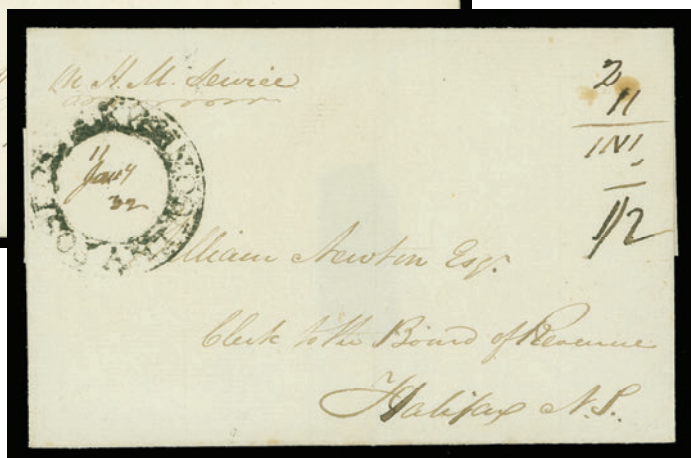 On H. M. Service
2
11
1N1
1/2
11
Jany
32
William Newton Esqr.
Clerk to the Board of Revenue
Halifax N.S.